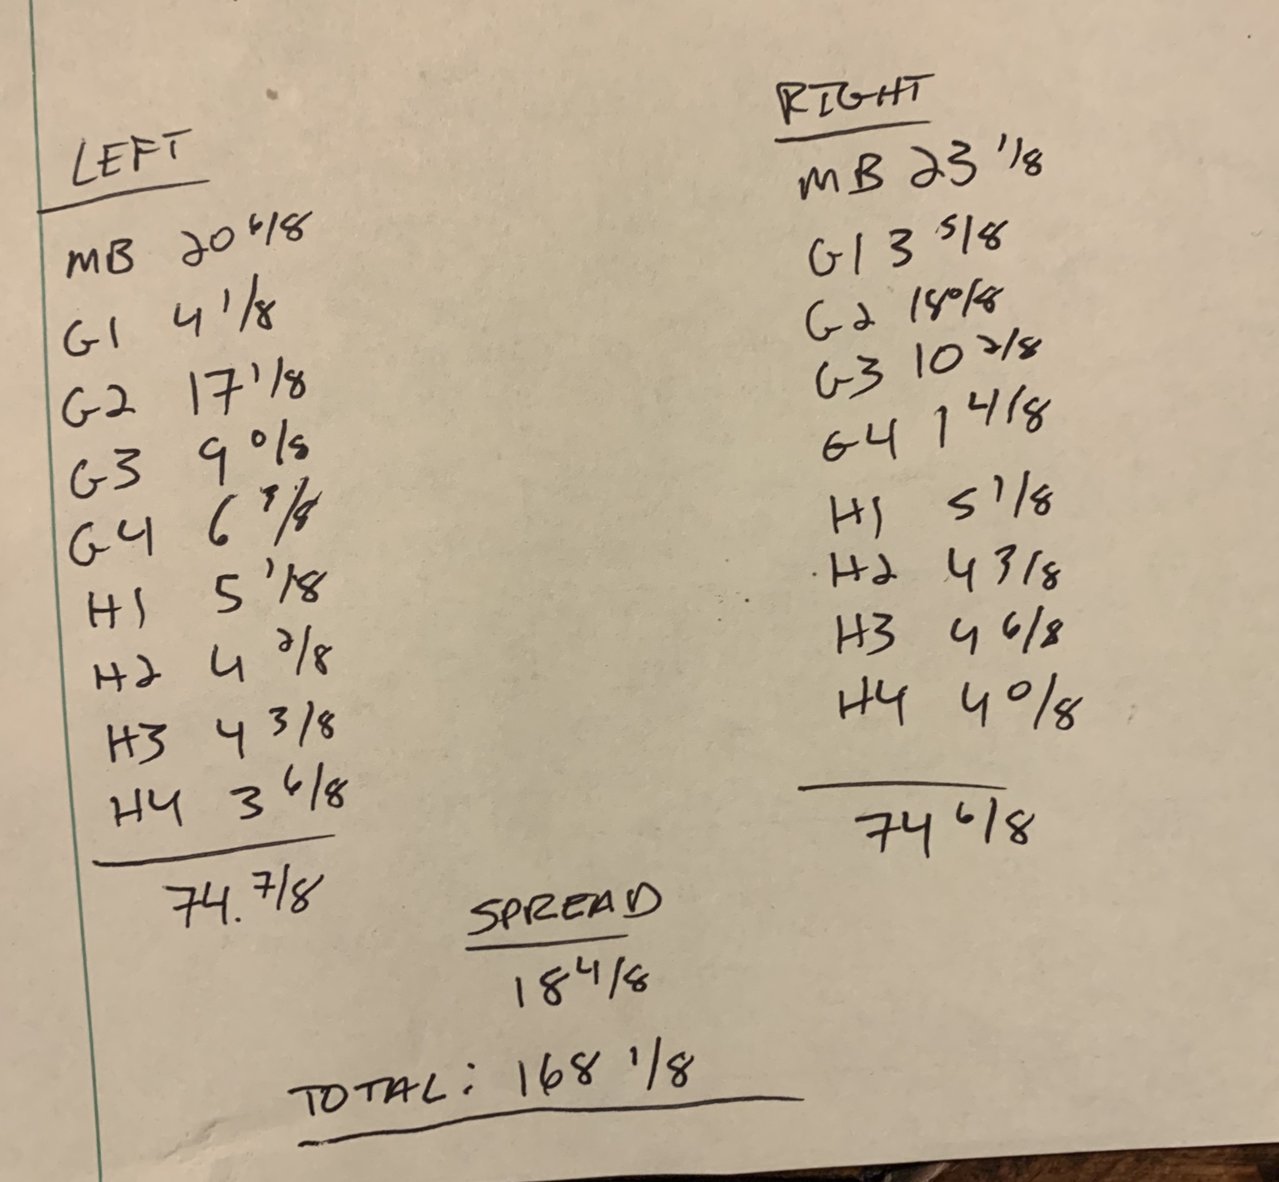 LEFT
MB 20 6/8
G1 4 1/8
G2 17 1/8
G3 9 0/8
G4 6 3/8
H1 5 1/8
H2 4 2/8
H3 4 3/8
H4 3 6/8
74. 7/8
RIGHT
MB 23 1/8
G1 3 5/8
G2 18 0/8
G3 10 2/8
G4 1 4/8
H1 5 1/8
H2 4 3/8
H3 4 6/8
H4 4 0/8
74 6/8
SPREAD
18 4/8
TOTAL: 168 1/8